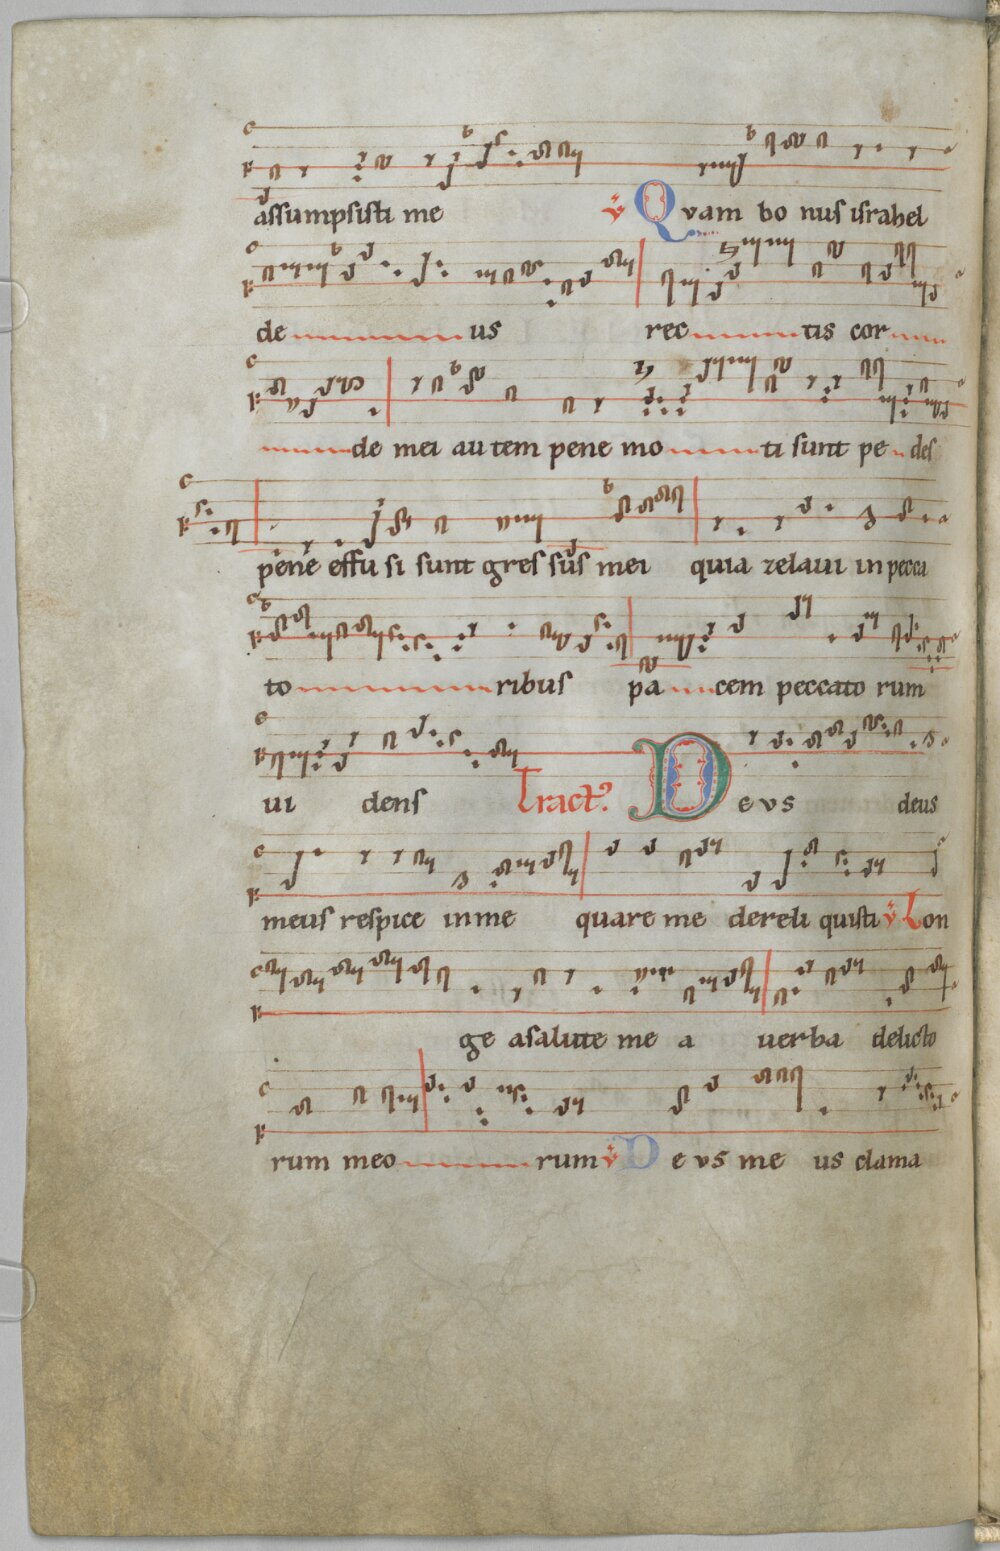 assumpsisti me v Quam bo nus israhel
de us rec tis cor
de mei au tem pene mo ti sunt pe des
pene effu si sunt gres sus mei quia zelaui in pecca
to ribus pa cem peccato rum
ui dens Tract' Deus deus
meus respice in me quare me dereli quisti v Lon
ge a salute me a uerba delicto
rum meo rum v Deus me us clama